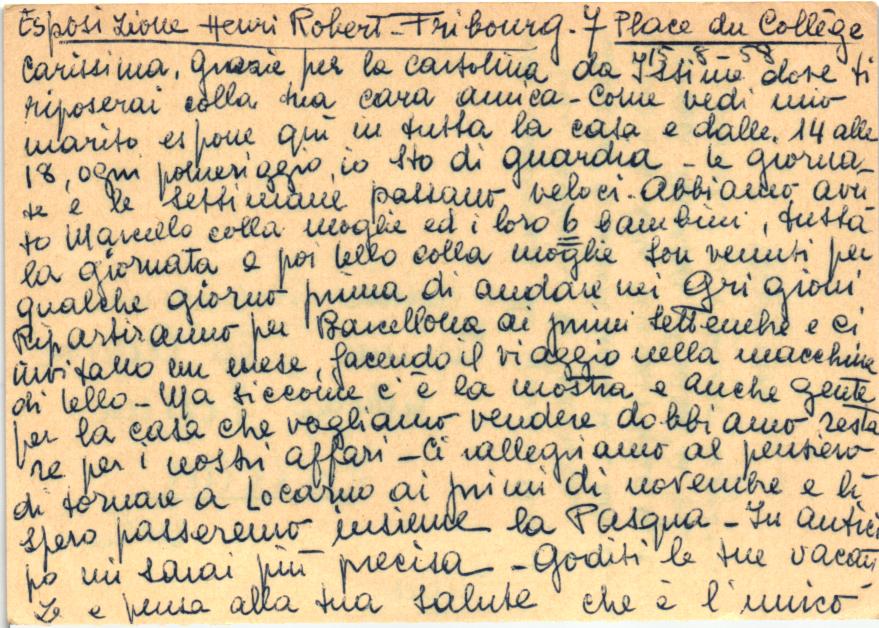 Esposizione Henri Robert - Fribourg. 7 Place du Collège
15-8-58
carissima, grazie per la cartolina da Issime dove ti
riposerai colla tua cara amica - Come vedi mio
marito espone quì in tutta la casa e dalle 14 alle
18, ogni pomeriggio, io sto di guardia - le giorna-
te e le settimane passano veloci. Abbiamo avu
to Marcello colla moglie ed i loro 6 bambini, tutta
la giornata e poi Lello colla moglie son venuti per
qualche giorno prima di andare nei Grigioni
Ripartiranno per Barcellona ai primi settembre e ci
invitano un mese, facendo il viaggio nella macchina
di Lello - Ma siccome c'è la mostra e anche gente
per la casa che vogliamo vendere dobbiamo resta
re per i nostri affari - Ci rallegriamo al pensiero
di tornare a Locarno ai primi di novembre e lì
spero passeremo insieme la Pasqua - In antici
po mi sarai più precisa - Goditi le tue vacan
ze e pensa alla tua salute che è l'unico